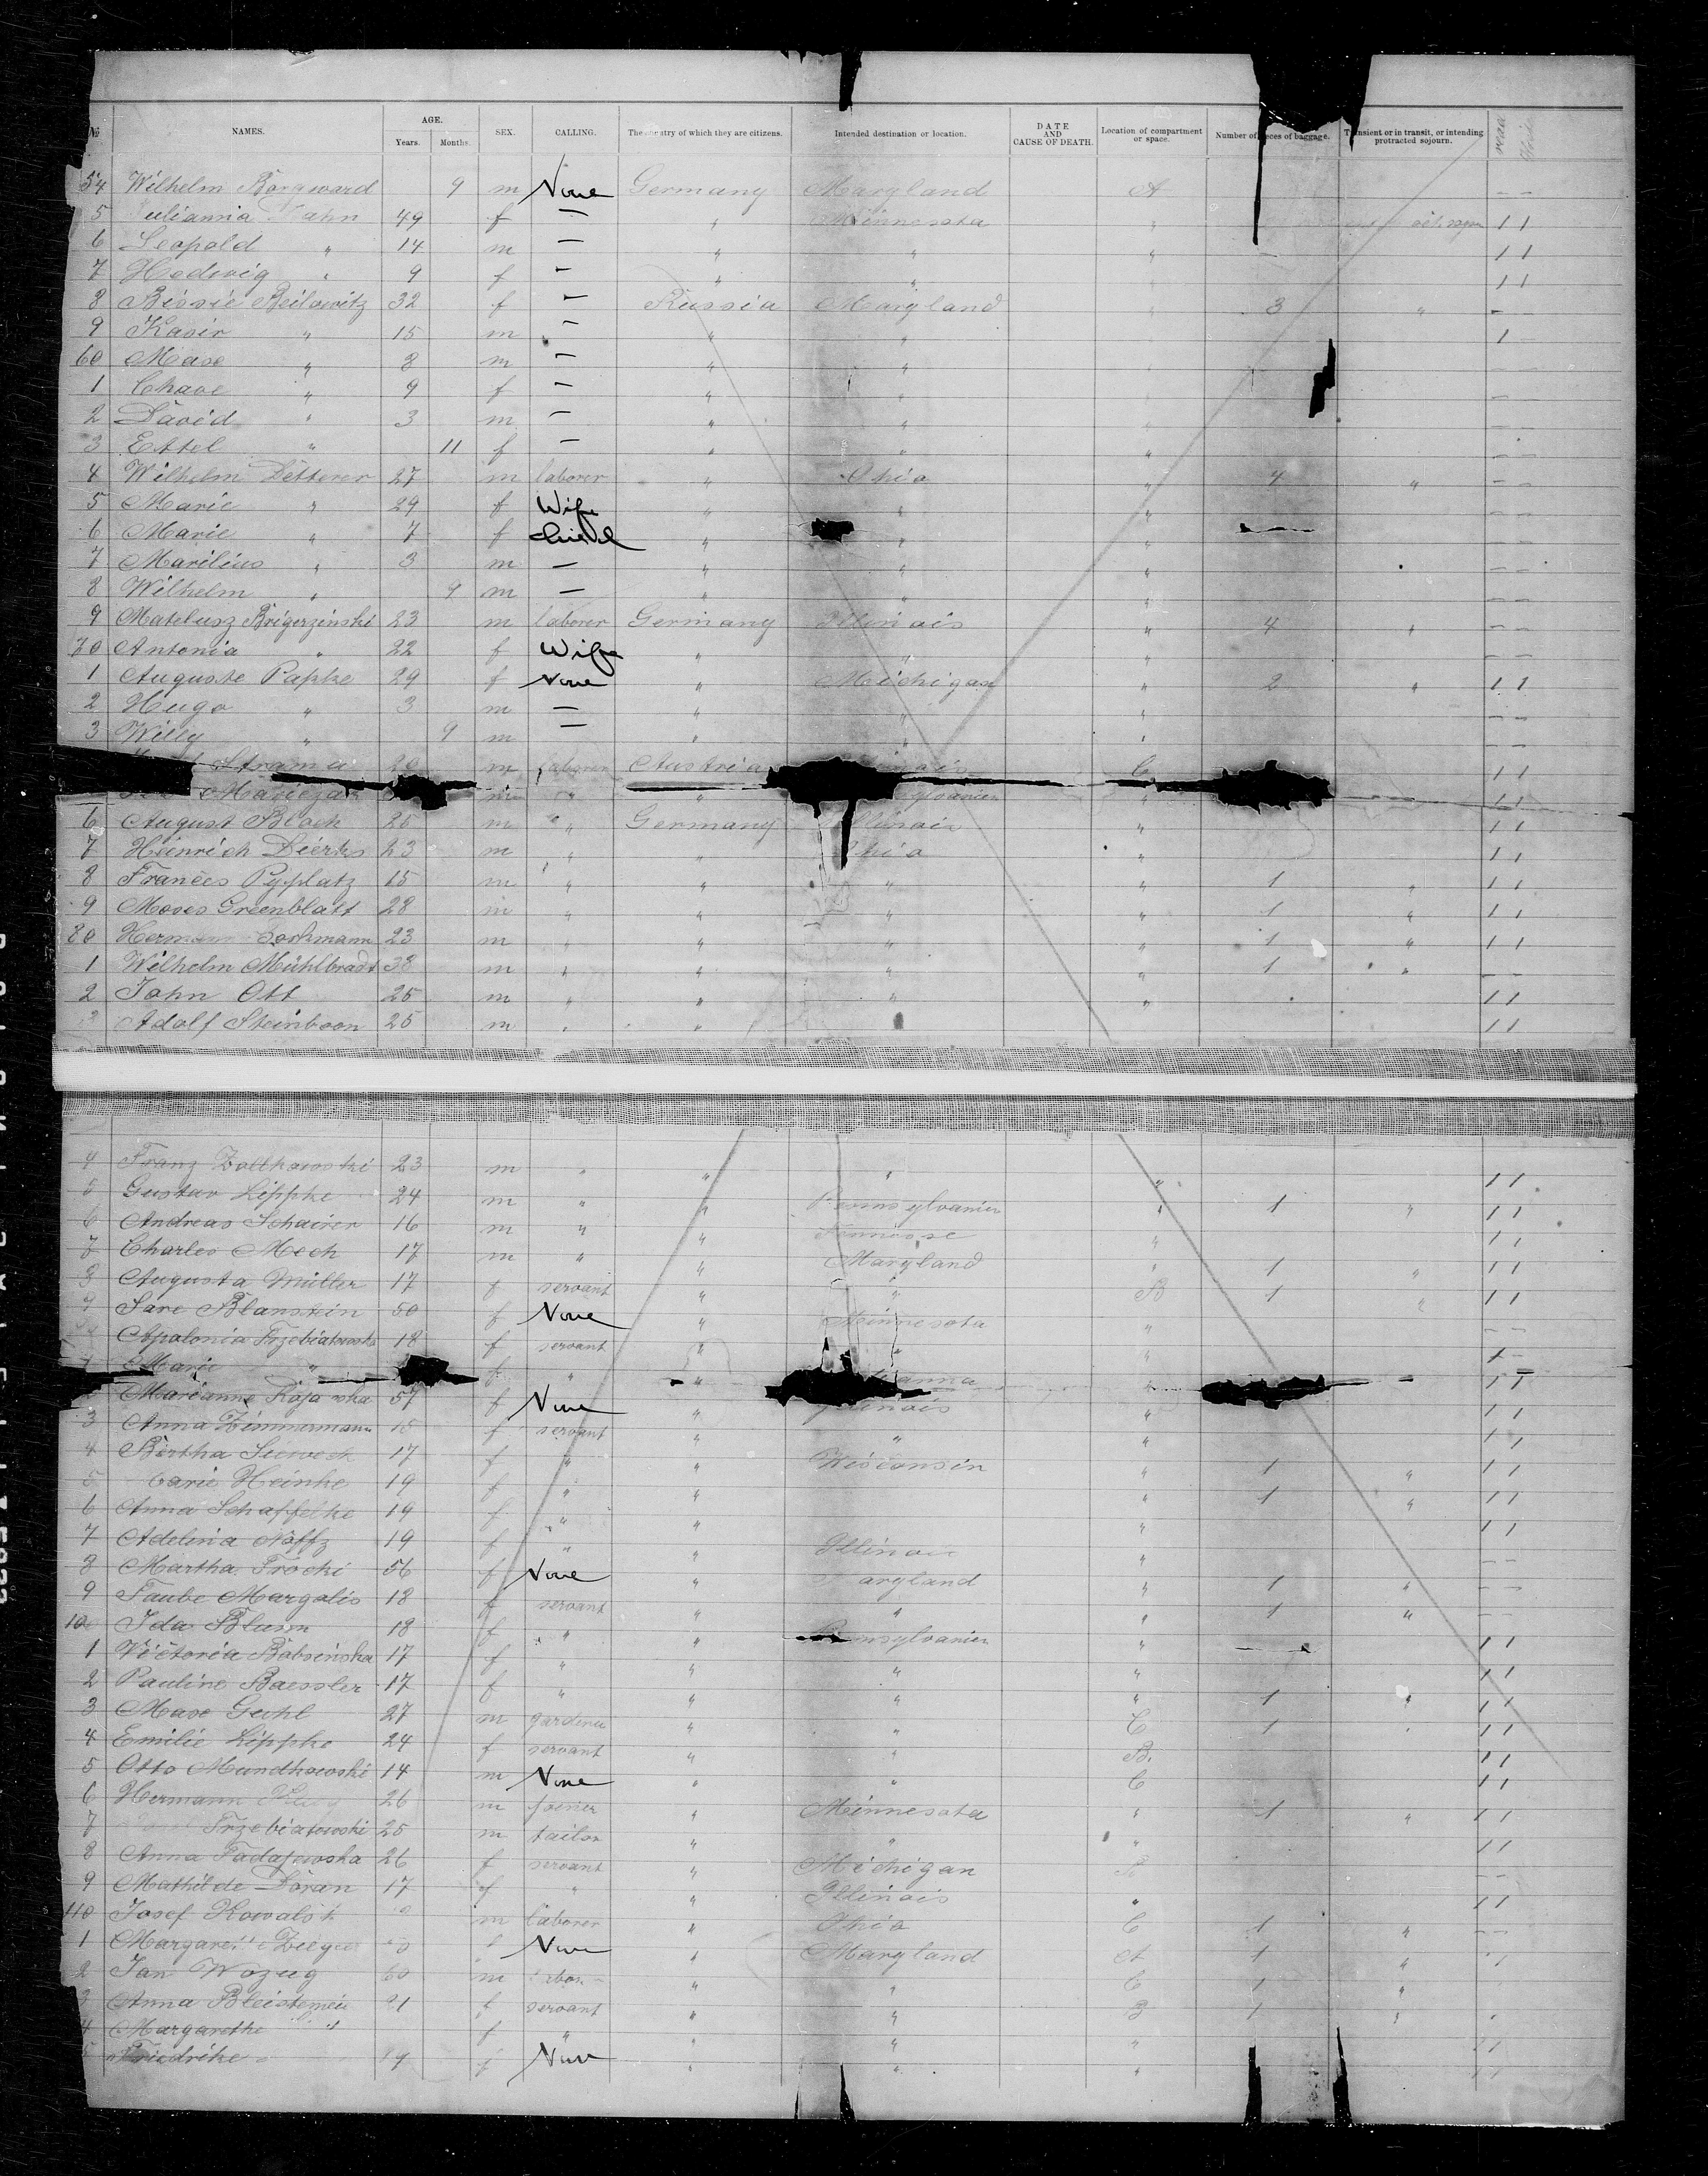 No NAMES. AGE. Years. Months. SEX. CALLING. The country of which they are citizens. Intended destination or location. DATE AND CAUSE OF DEATH. Location of compartment or space. Number of pieces of baggage. Transient or in transit, or intending protracted sojourn.
54 Wilhelm Borgward 9 m None Germany Maryland A – –
5 Julianna Hahn 49 f — " Minnesota " 1 1
6 Leopold " 14 m — " " " 1 1
7 Hedwig " 9 f — " " 1 1
8 Beilowitz 32 f — Russia Maryland 3 " –
9 " 15 m — " " 1 –
60 " 8 m — " " – –
1 Chave " 9 f — " " – –
2 David " 3 m — " " – –
3 Ettel " 11 f — " " " – –
4 Wilhelm Detterer 27 m laborer " Ohio " 4 " – –
5 Marie " 29 f Wife " " " – –
6 Marie " 7 f child " " " – –
7 " 3 m — " " " – –
8 Wilhelm " 9 m — " " " – –
9 Mateusz Brigerzinski 23 m laborer Germany Illinois " 4 " – –
70 Antonia " 22 f Wife " " " – –
1 Auguste Papke 29 f None " Michigan " 2 " 1 1
2 Hugo " 3 m — " " " – –
3 Willy " 9 m — " " " – –
Strama m laborer Austria C 1 1
m " " " 1 1
6 August Block 26 m " Germany Illinois " 1 1
7 Heinrich Dierks 23 m " " Ohio " 1 1
8 Pyplatz 15 m " " " " 1 " 1 1
9 Moses Greenblatt 28 m " " " " 1 " 1 1
80 23 m " " " " 1 " 1 1
1 Wilhelm Mühlbradt 38 m " " " " 1 " – –
2 John Ott 25 m " " " " 1 1
3 Adolf Steinboon 25 m " " 1 1
4 Franz Zolkowski 23 m " " " " 1 1
5 Gustav Lippke 24 m " " Pennsylvanien " 1 " 1 1
6 Andreas Schairer 16 m " " " 1 1
7 Charles Mech 17 m " " Maryland " 1 " 1 1
8 Augusta Müller 17 f servant " " B 1 " 1 1
9 Sare Blanstein 50 f None " Minnesota " – –
Apolonia Trzebiatowski 18 f servant " " " 1 –
1 Marie " f " " " 1 1
2 Marianne 57 f None " Illinois " 1 1
3 Anna Zimmermann f servant " " " 1 1
4 Bertha 17 f " " Wisconsin " 1 " 1 1
5 Heinke 19 f " " " 1 " 1 1
6 Anna Schaffelke 19 f " " " 1 1
7 Adelina Näffz 19 f " " Illinois " – –
8 Martha Trocki 56 f None " Maryland " 1 " – –
9 Taube Margolis 18 f servant " " " 1 " – –
100 Ida Blum 18 f " " Pennsylvanien " 1 1
1 Victoria Babsinska 17 f " " " " 1 1
2 Pauline Baessler 17 f " " " " 1 " 1 1
3 Guhl 27 m gardener " " C 1 " 1 1
4 Emilie Lippke 24 f servant " " B. 1 1
5 Otto Mundkowski 14 m None " " C 1 1
6 Hermann 26 m joiner " Minnesota " 1 " 1 1
7 Trzebiatowski 25 m tailor " " " 1 1
8 Anna Tadajewska 26 f servant " Michigan B – –
9 Mathilde Doran 17 f " " Illinois " 1 1
110 Josef Kowalski m laborer " Ohio C 1 " – –
1 f None " Maryland A 1 " 1
2 Jan Wozug 60 m " " C 1 "
3 Anna 21 f servant " " B 1 "
4 Margarethe " f " " " " 1 1
5 Friedrike f None " " " 1 1